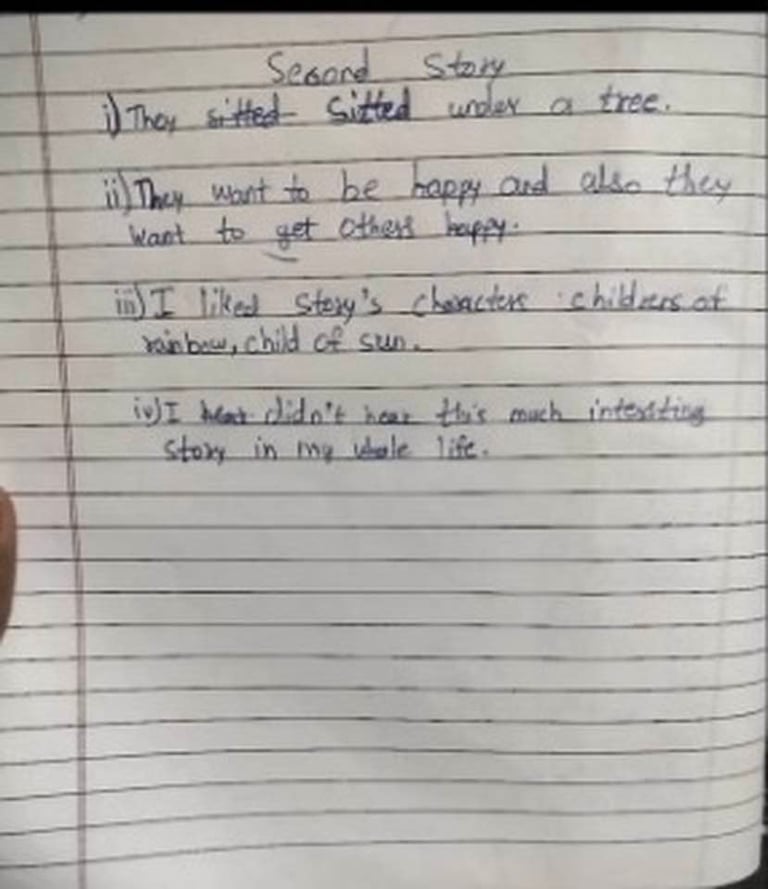 Second Story
i) They sitted Sitted under a tree.
ii) They want to be happy and also they
want to get others happy.
iii) I liked story's characters childrens of
rainbow, child of sun.
iv) I hear didn't hear this much intersting
story in my whole life.